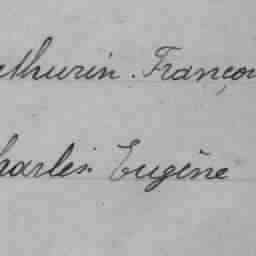 athurin. François
harles. Eugène